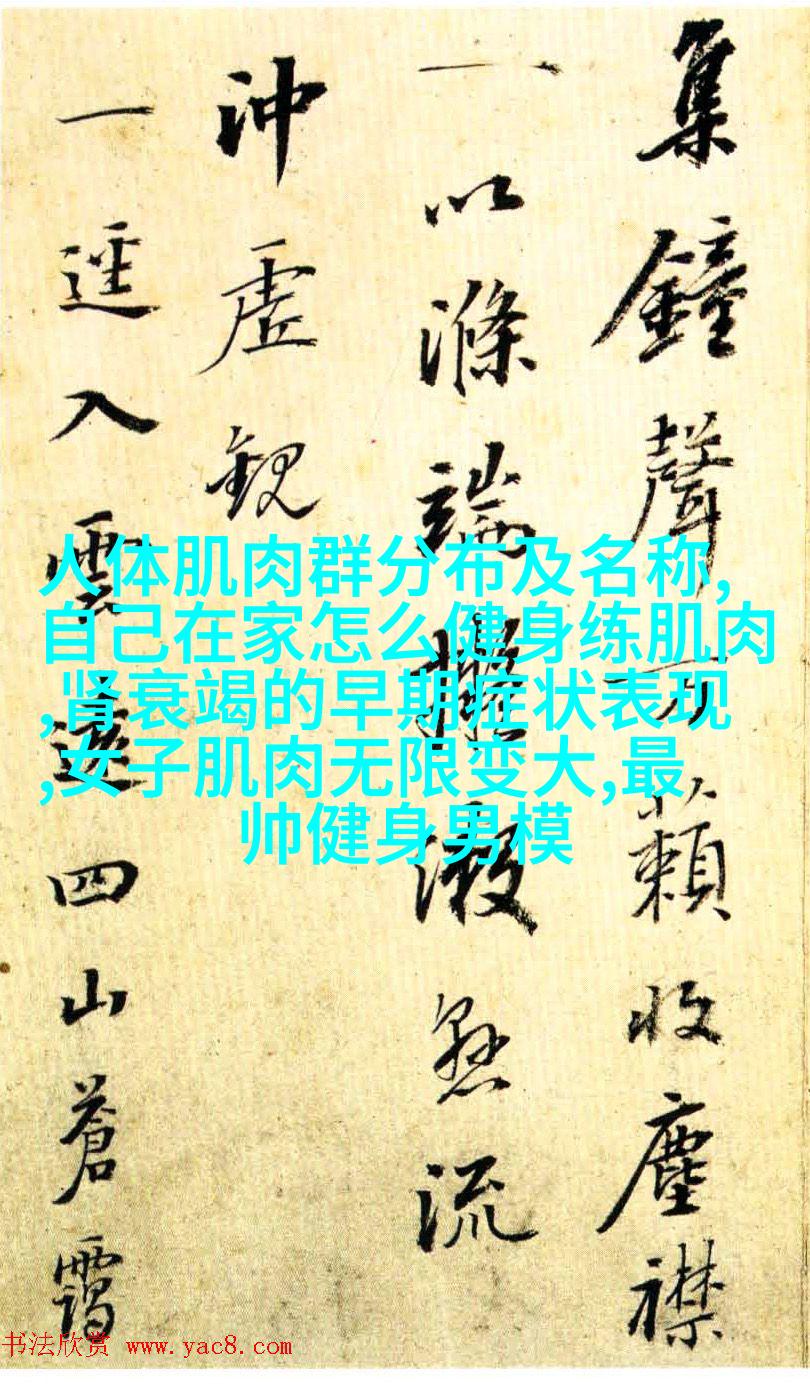 集鐘聲万籟收塵襟
一以滌端流
沖虛觀
一逕入雲四山蒼靄
人体肌肉群分布及名称,
自己在家怎么健身练肌肉
,肾衰竭的早期症状表现
,女子肌肉无限变大,最
帅健身男模
书法欣赏 www.yac8.com